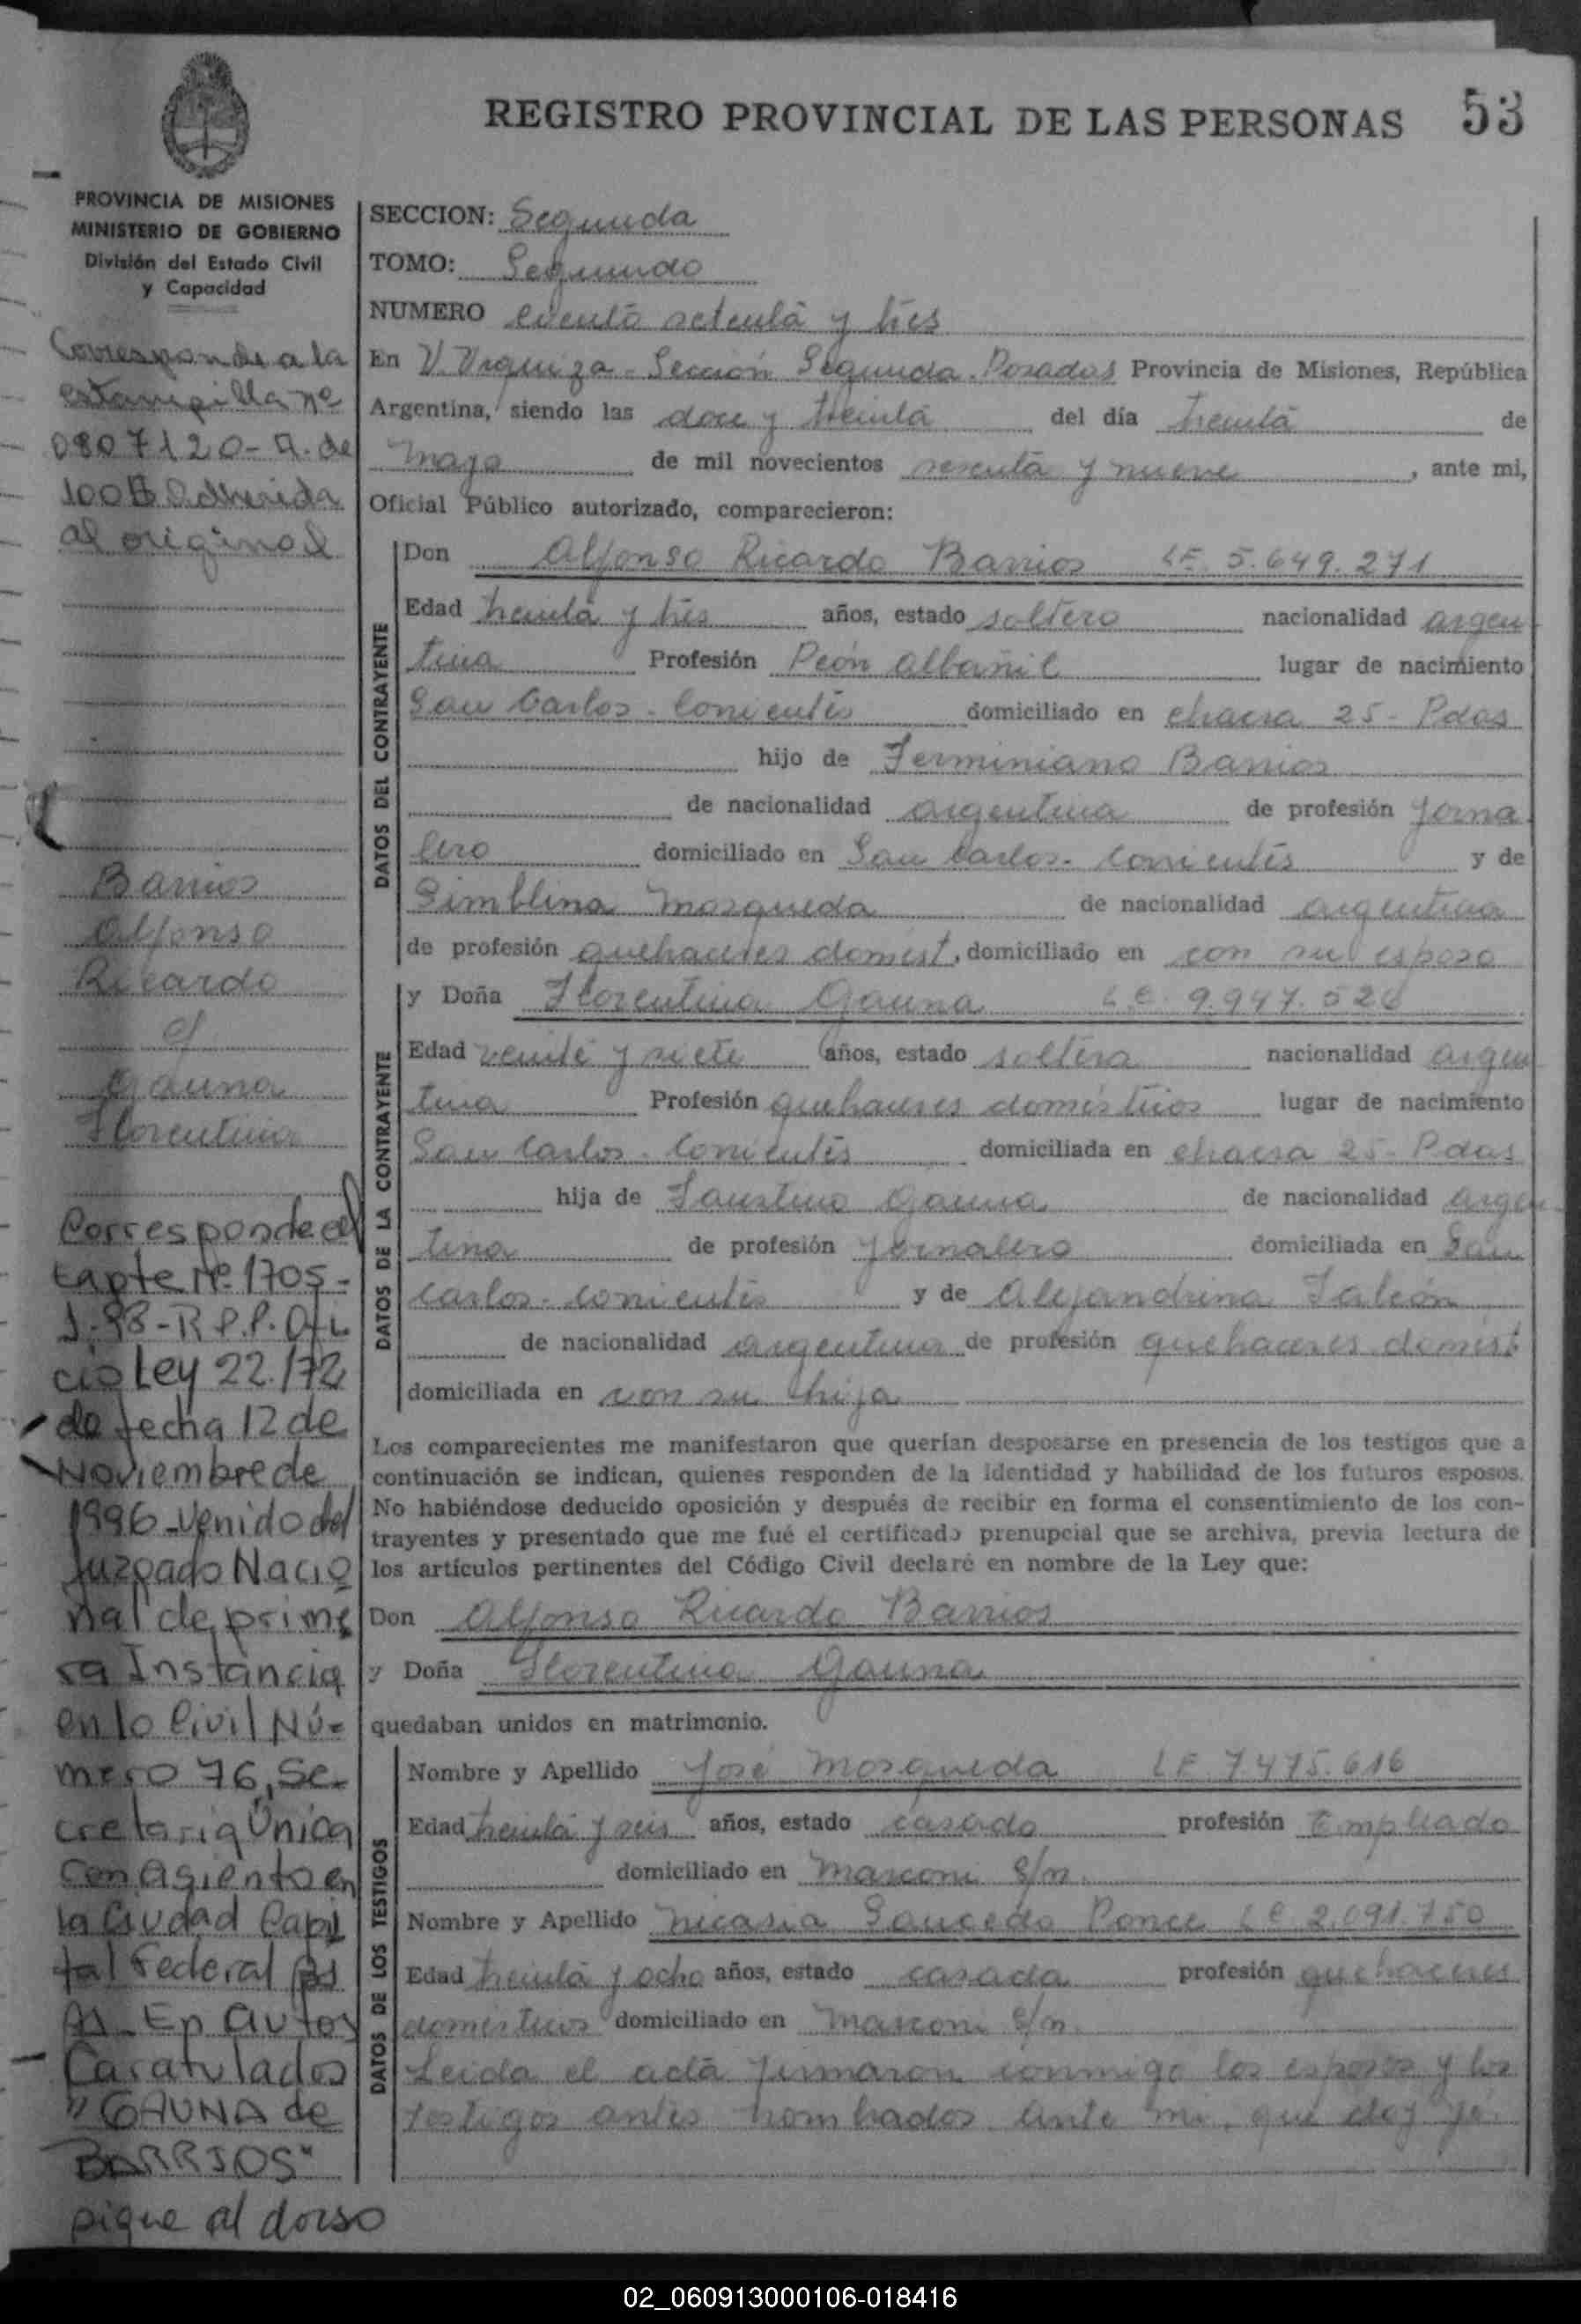 REGISTRO PROVINCIAL DE LAS PERSONAS 53
PROVINCIA DE MISIONES
MINISTERIO DE GOBIERNO
División del Estado Civil
y Capacidad
Corresponde a la
estampilla nº
0807120-A. de
100 $ Adherida
al original
Barrios
Alfonso
Ricardo
c/
Gauna
Florentina
Corresponde al
Expte Nº 1705-
J-98-R.P.P. Ofi
cio Ley 22.172
de fecha 12 de
Noviembre de
1996-venido del
Juzgado Nacio
nal de prime
ra Instancia
en lo Civil Nú-
mero 76, Se-
cretaria Única
con asiento en
la Ciudad Capi
tal Federal Bs
As. En autos
Caratulados
"GAUNA de
BARRIOS"
sigue al dorso
SECCION: Segunda
TOMO: Segundo
NUMERO ciento setenta y tres
En V. Urquiza - Sección Segunda. Posadas Provincia de Misiones, República
Argentina, siendo las doce y treinta del día treinta de
mayo de mil novecientos sesenta y nueve, ante mi,
Oficial Público autorizado, comparecieron:
DATOS DEL CONTRAYENTE
Don Alfonso Ricardo Barrios L.E. 5.649.271
Edad treinta y tres años, estado soltero nacionalidad argen
tina Profesión Peón albañil lugar de nacimiento
San Carlos - Corrientes domiciliado en chacra 25 - Pdas
hijo de Ferminiano Barrios
de nacionalidad argentina de profesión Jorna
lero domiciliado en San Carlos - Corrientes y de
Simblina Mosqueda de nacionalidad argentina
de profesión quehaceres domést. domiciliado en con su esposo
DATOS DE LA CONTRAYENTE
y Doña Florentina Gauna L.C. 9.947.526
Edad veinte y siete años, estado soltera nacionalidad argen
tina Profesión quehaceres domésticos lugar de nacimiento
San Carlos - Corrientes domiciliada en chacra 25 - Pdas
hija de Faustino Gauna de nacionalidad argen
tina de profesión Jornalero domiciliada en San
Carlos - Corrientes y de Alejandrina Falcón
de nacionalidad argentina de profesión quehaceres domést
domiciliada en con su hija
Los comparecientes me manifestaron que querían desposarse en presencia de los testigos que a
continuación se indican, quienes responden de la identidad y habilidad de los futuros esposos.
No habiéndose deducido oposición y después de recibir en forma el consentimiento de los con-
trayentes y presentado que me fué el certificado prenupcial que se archiva, previa lectura de
los artículos pertinentes del Código Civil declaré en nombre de la Ley que:
Don Alfonso Ricardo Barrios
y Doña Florentina Gauna
quedaban unidos en matrimonio.
DATOS DE LOS TESTIGOS
Nombre y Apellido José Mosqueda L.E. 7.475.616
Edad treinta y seis años, estado casado profesión Empleado
domiciliado en Marconi s/n.
Nombre y Apellido Nicasia Saucedo Ponce L.C. 2.091.750
Edad treinta y ocho años, estado casada profesión quehaceres
domésticos domiciliado en Marconi s/n.
Leida el acta firmaron conmigo los esposos y los
testigos antes nombrados ante mi, que doy fé.
02_060913000106-018416